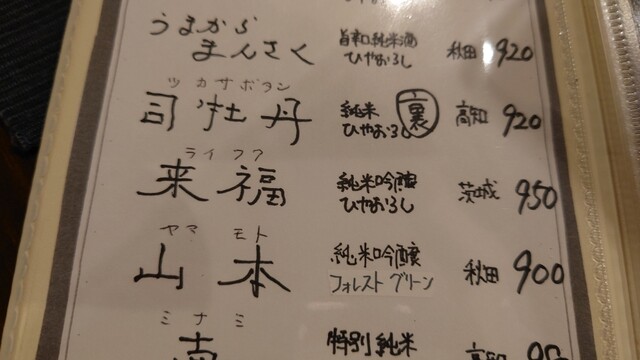 うまから
まんさく
旨辛口純米酒
ひやおろし
秋田 920
ツカサボタン
司牡丹
純米
ひやおろし
裏
高知 920
ライフク
来福
純米吟醸
ひやおろし
茨城 950
ヤマ モト
山本
純米吟醸
フォレストグリーン
秋田 900
ミナミ
特別純米